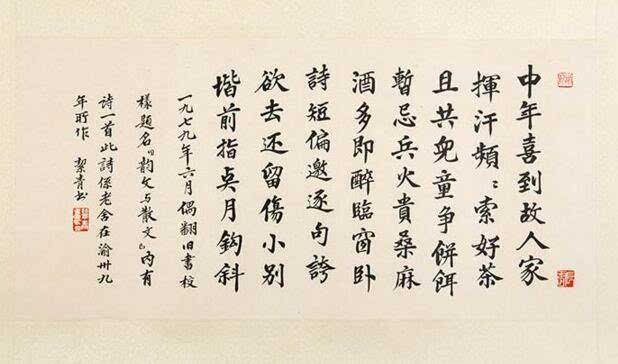 中年喜到故人家
揮汗頻〻索好茶
且共兒童爭餅餌
暫忘兵火貴桑麻
酒多即醉臨窗卧
詩短偏邀逐句誇
欲去還留傷小別
堦前指㸃月鈎斜
一九七九年六月偶翻旧書校
樣題名《韵文与散文》内有
詩一首此詩係老舍在渝州九
年所作 絜青书